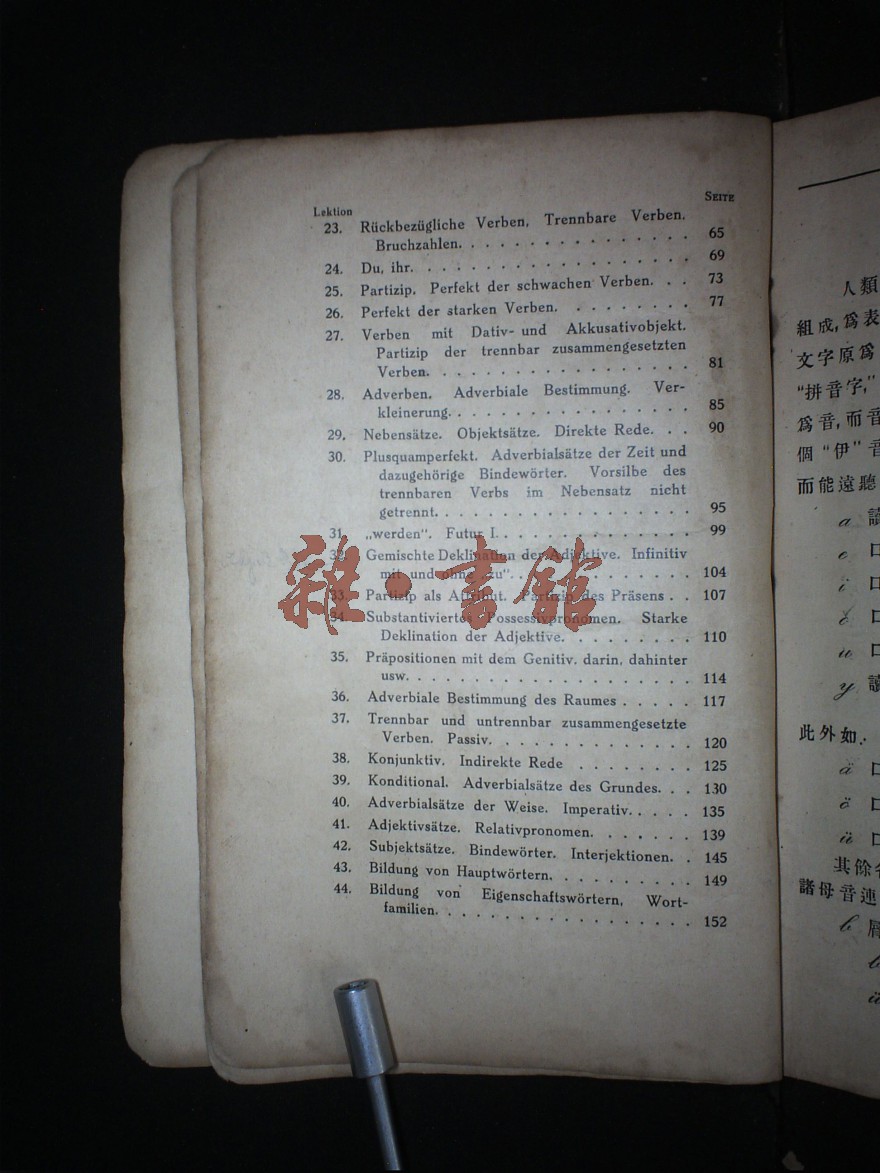 Lektion SEITE
23. Rückbezügliche Verben, Trennbare Verben.
Bruchzahlen. . . . . . . . . . . . . . . . 65
24. Du, ihr. . . . . . . . . . . . . . . . . . . 69
25. Partizip. Perfekt der schwachen Verben. . . 73
26. Perfekt der starken Verben. . . . . . . . . 77
27. Verben mit Dativ- und Akkusativobjekt.
Partizip der trennbar zusammengesetzten
Verben. . . . . . . . . . . . . . . . . . 81
28. Adverben. Adverbiale Bestimmung. Ver-
kleinerung. . . . . . . . . . . . . . . . 85
29. Nebensätze. Objektsätze. Direkte Rede. . . 90
30. Plusquamperfekt. Adverbialsätze der Zeit und
dazugehörige Bindewörter. Vorsilbe des
trennbaren Verbs im Nebensatz nicht
getrennt. . . . . . . . . . . . . . . . . . 95
31. „werden". Futur I. . . . . . . . . . . . . . 99
32. Gemischte Deklination der Adjektive. Infinitiv
mit und ohne „zu". . . . . . . . . . . . . 104
33. Partizip als Attribut. Partizip des Präsens . . 107
34. Substantiviertes Possessivpronomen. Starke
Deklination der Adjektive. . . . . . . . . 110
35. Präpositionen mit dem Genitiv. darin. dahinter
usw. . . . . . . . . . . . . . . . . . . . 114
36. Adverbiale Bestimmung des Raumes . . . . . 117
37. Trennbar und untrennbar zusammengesetzte
Verben. Passiv. . . . . . . . . . . . . . 120
38. Konjunktiv. Indirekte Rede . . . . . . . . 125
39. Konditional. Adverbialsätze des Grundes. . . 130
40. Adverbialsätze der Weise. Imperativ. . . . . 135
41. Adjektivsätze. Relativpronomen. . . . . . . 139
42. Subjektsätze. Bindewörter. Interjektionen. . 145
43. Bildung von Hauptwörtern. . . . . . . . . . 149
44. Bildung von Eigenschaftswörtern, Wort-
familien. . . . . . . . . . . . . . . . . . 152
雜·書館
人類
組成,爲表
文字原爲
"拼音字,"
爲音,而音
個"伊"音
而能遠聽
a 讀
e 口
i 口
口
u 口
y 讀
此外如:
ä 口
ö 口
ü 口
其餘
諸母音連
b 脣